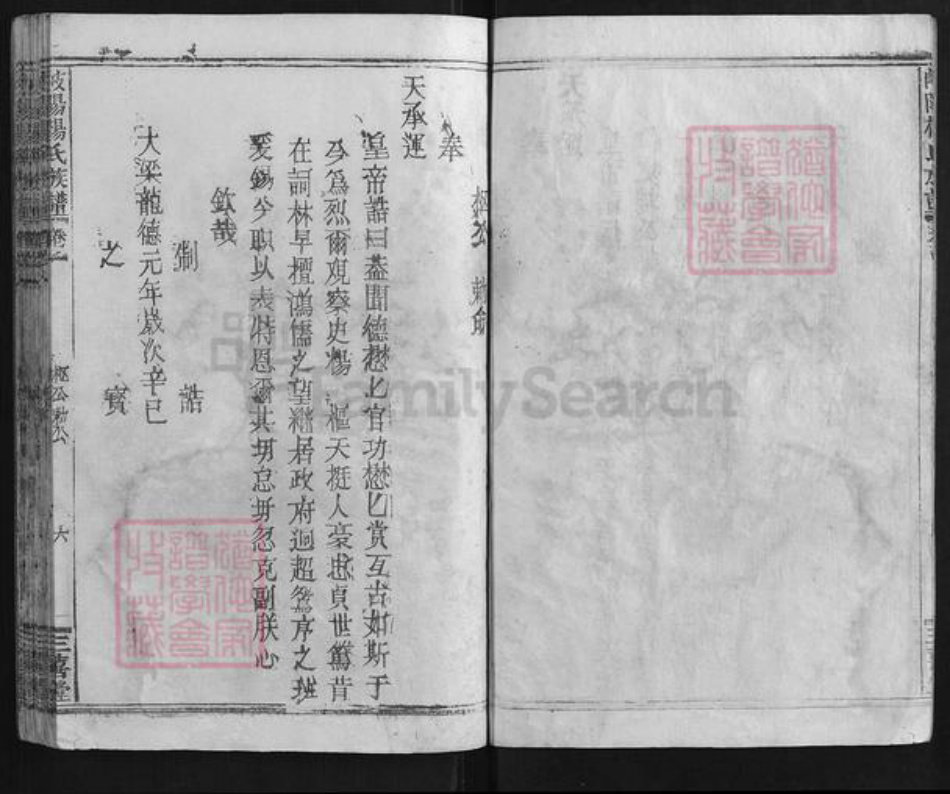 樞公勅命
奉
天承運
皇帝誥曰葢聞德懋乚官功懋乚賞亙古如斯于
今為烈爾观察史楊 樞天挺人豪忠貞世篤昔
在詞林早擅鴻儒之望継居政府迥超鴛序之班
爰錫今职以表特恩爾其毋怠毋忽克副朕心
欽哉
制 誥
大梁龍德元年歲次辛巳
之 寶
楊氏族譜 卷之
樞公勅公
六
三善堂
譜學會
收藏
FamilySearch